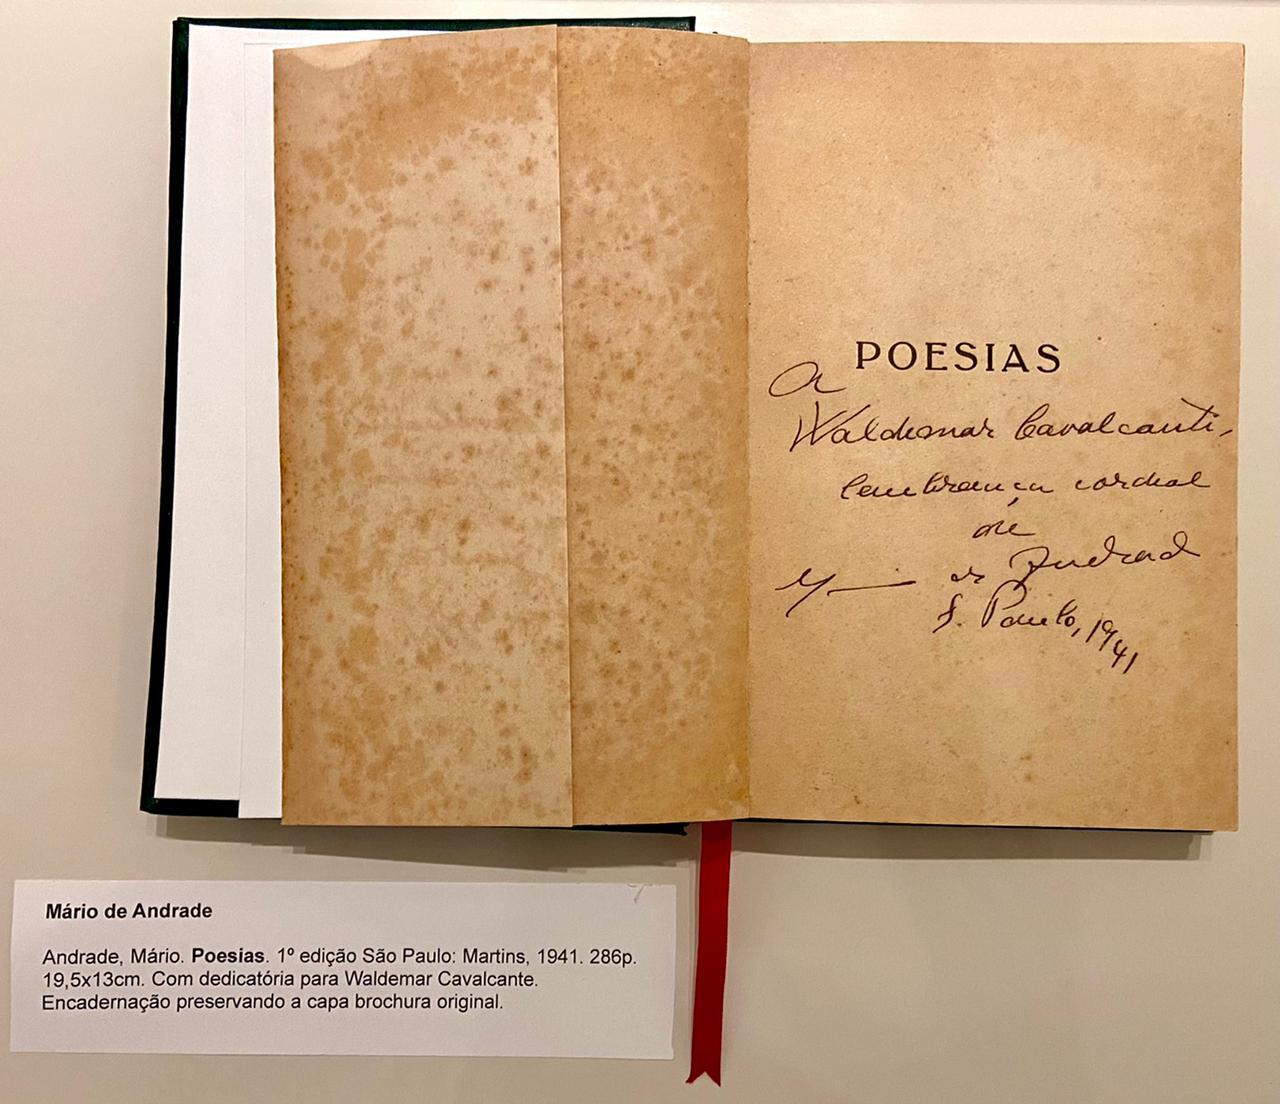 POESIAS
A
Waldemar Cavalcanti,
lembrança cordial
de
de Andrade
S. Paulo, 1941
Mário de Andrade
Andrade, Mário. Poesias. 1º edição São Paulo: Martins, 1941. 286p.
19,5x13cm. Com dedicatória para Waldemar Cavalcante.
Encadernação preservando a capa brochura original.